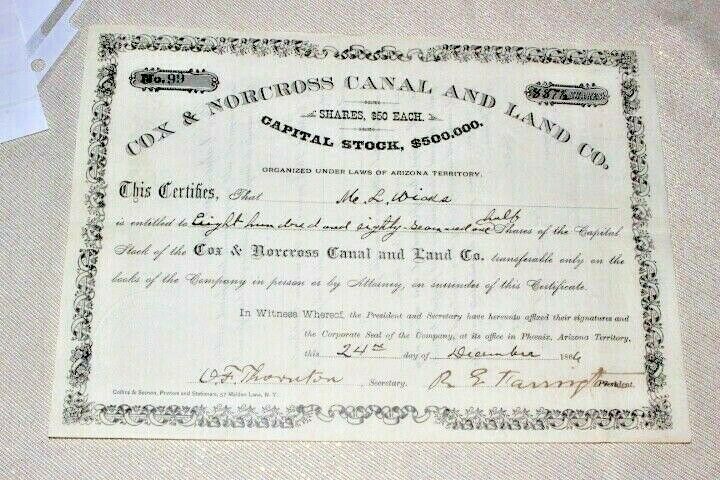 No. 99
887½ SHARES
COX & NORCROSS CANAL AND LAND CO.
SHARES, $50 EACH.
CAPITAL STOCK, $500,000.
ORGANIZED UNDER LAWS OF ARIZONA TERRITORY.
This Certifies, That M. L. Wicks
half
is entitled to Eight hundred and eighty seven and one Shares of the Capital
Stock of the Cox & Norcross Canal and Land Co. transferable only on the
books of the Company in person or by Attorney, on surrender of this Certificate.
In Witness Whereof, the President and Secretary have hereunto affixed their signatures and
the Corporate Seal of the Company, at its office in Phœnix, Arizona Territory,
this 24th day of December 1886
O. F. Thornton Secretary. R. E. Farrington President.
57 Maiden Lane, N. Y.